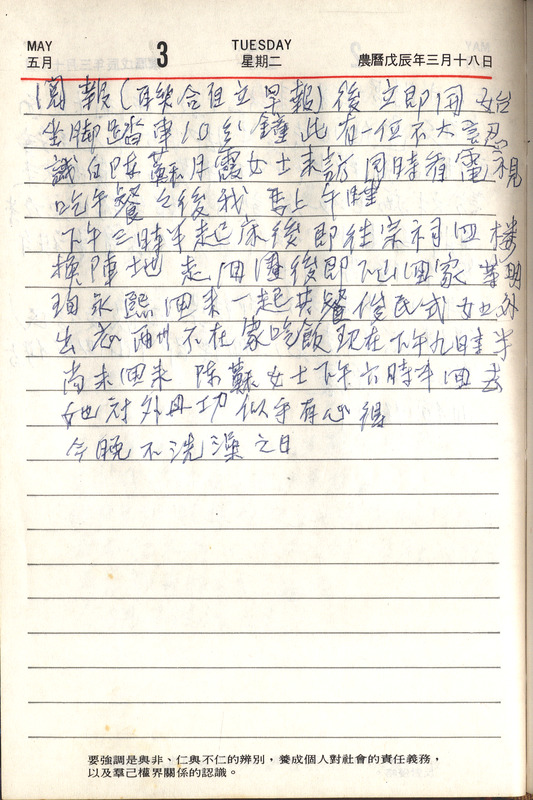 MAY 3 TUESDAY
五月 星期二 農曆戊辰年三月十八日
閱報(聯合自立早報)後立即開始
坐脚踏車10分鐘此有一位不大認
識的陳蘇月霞女士來訪同時看電視
吃午餐之後我馬上午睡
下午三時半起床後即往宗祠四樓
換陣地 走四圈後即下山回家 黎明
珀永熙回來一起共餐俊民武女士外
出 不在家吃飯現在下午九時半
尚未回來 陳蘇女士下午六時半回去
她对外丹功似乎有心得
今晚不洗澡之日
要強調是與非、仁與不仁的辨別，養成個人對社會的責任義務，
以及羣己權界關係的認識。